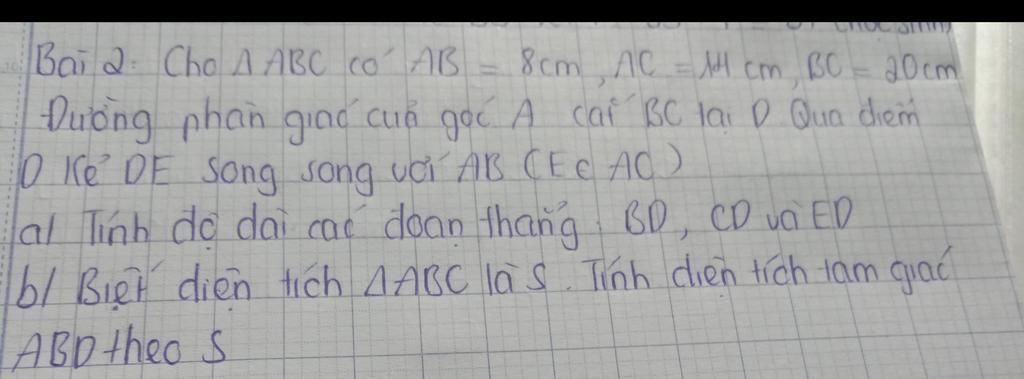 Bài 2: Cho Δ ABC có AB = 8cm, AC = 14 cm, BC = 20cm
Đường phân giác của góc A cắt BC tại D Qua điểm
D Kẻ DE song song với AB (E ∈ AC)
a/ Tính độ dài các đoạn thẳng: BD, CD và ED
b/ Biết diện tích ΔABC là S. Tính diện tích tam giác
ABD theo S